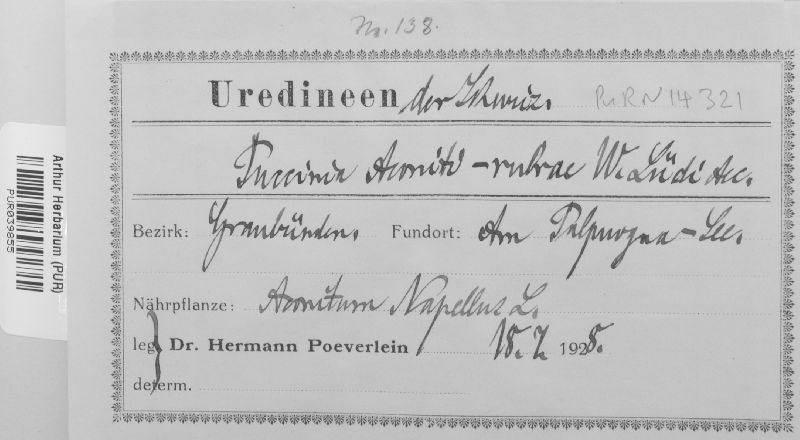 No. 138.
Uredineen der Schweiz. PuRN14321
Puccinia Aconiti-rubrae W. Lüdi Aec.
Bezirk: Graubünden. Fundort: Am Palpuogna-See.
Nährpflanze: Aconitum Napellus L.
leg. Dr. Hermann Poeverlein 18. 7. 1928.
determ.
Arthur Herbarium (PUR)
PUR039855